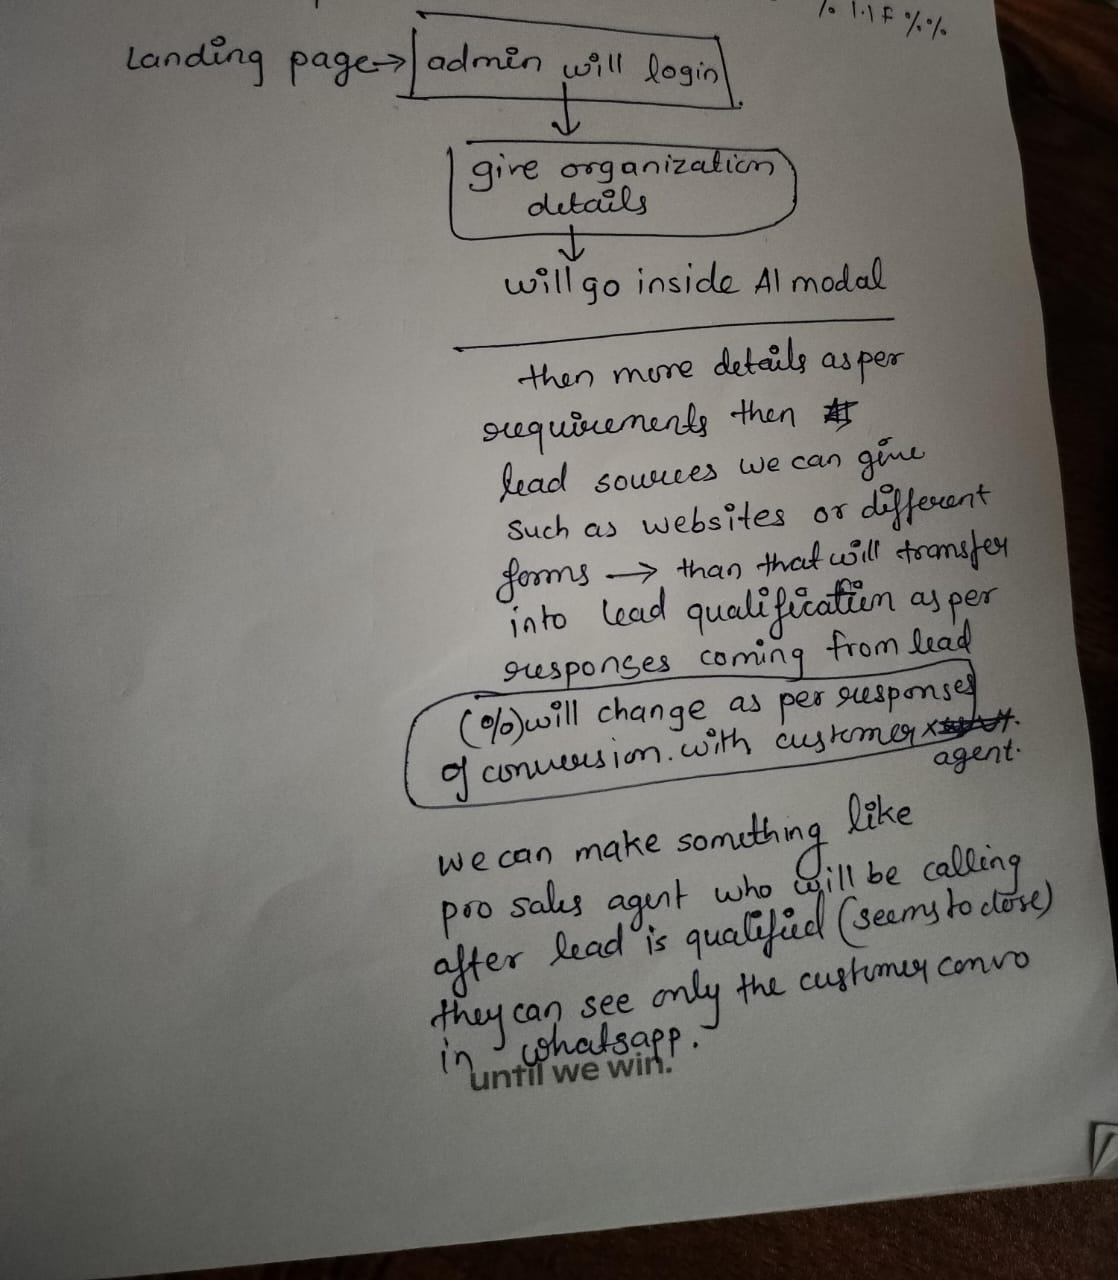 % %%
Landing page→ admin will login
give organization
details
will go inside AI modal
then more details as per
requirements then
lead sources we can give
such as websites or different
forms → than that will transfer
into lead qualification as per
responses coming from lead
(%) will change as per responses
of conversion. with customer x
agent.
we can make something like
pro sales agent who will be calling
after lead is qualified (seems to close)
they can see only the customer convo
in whatsapp.
until we win.